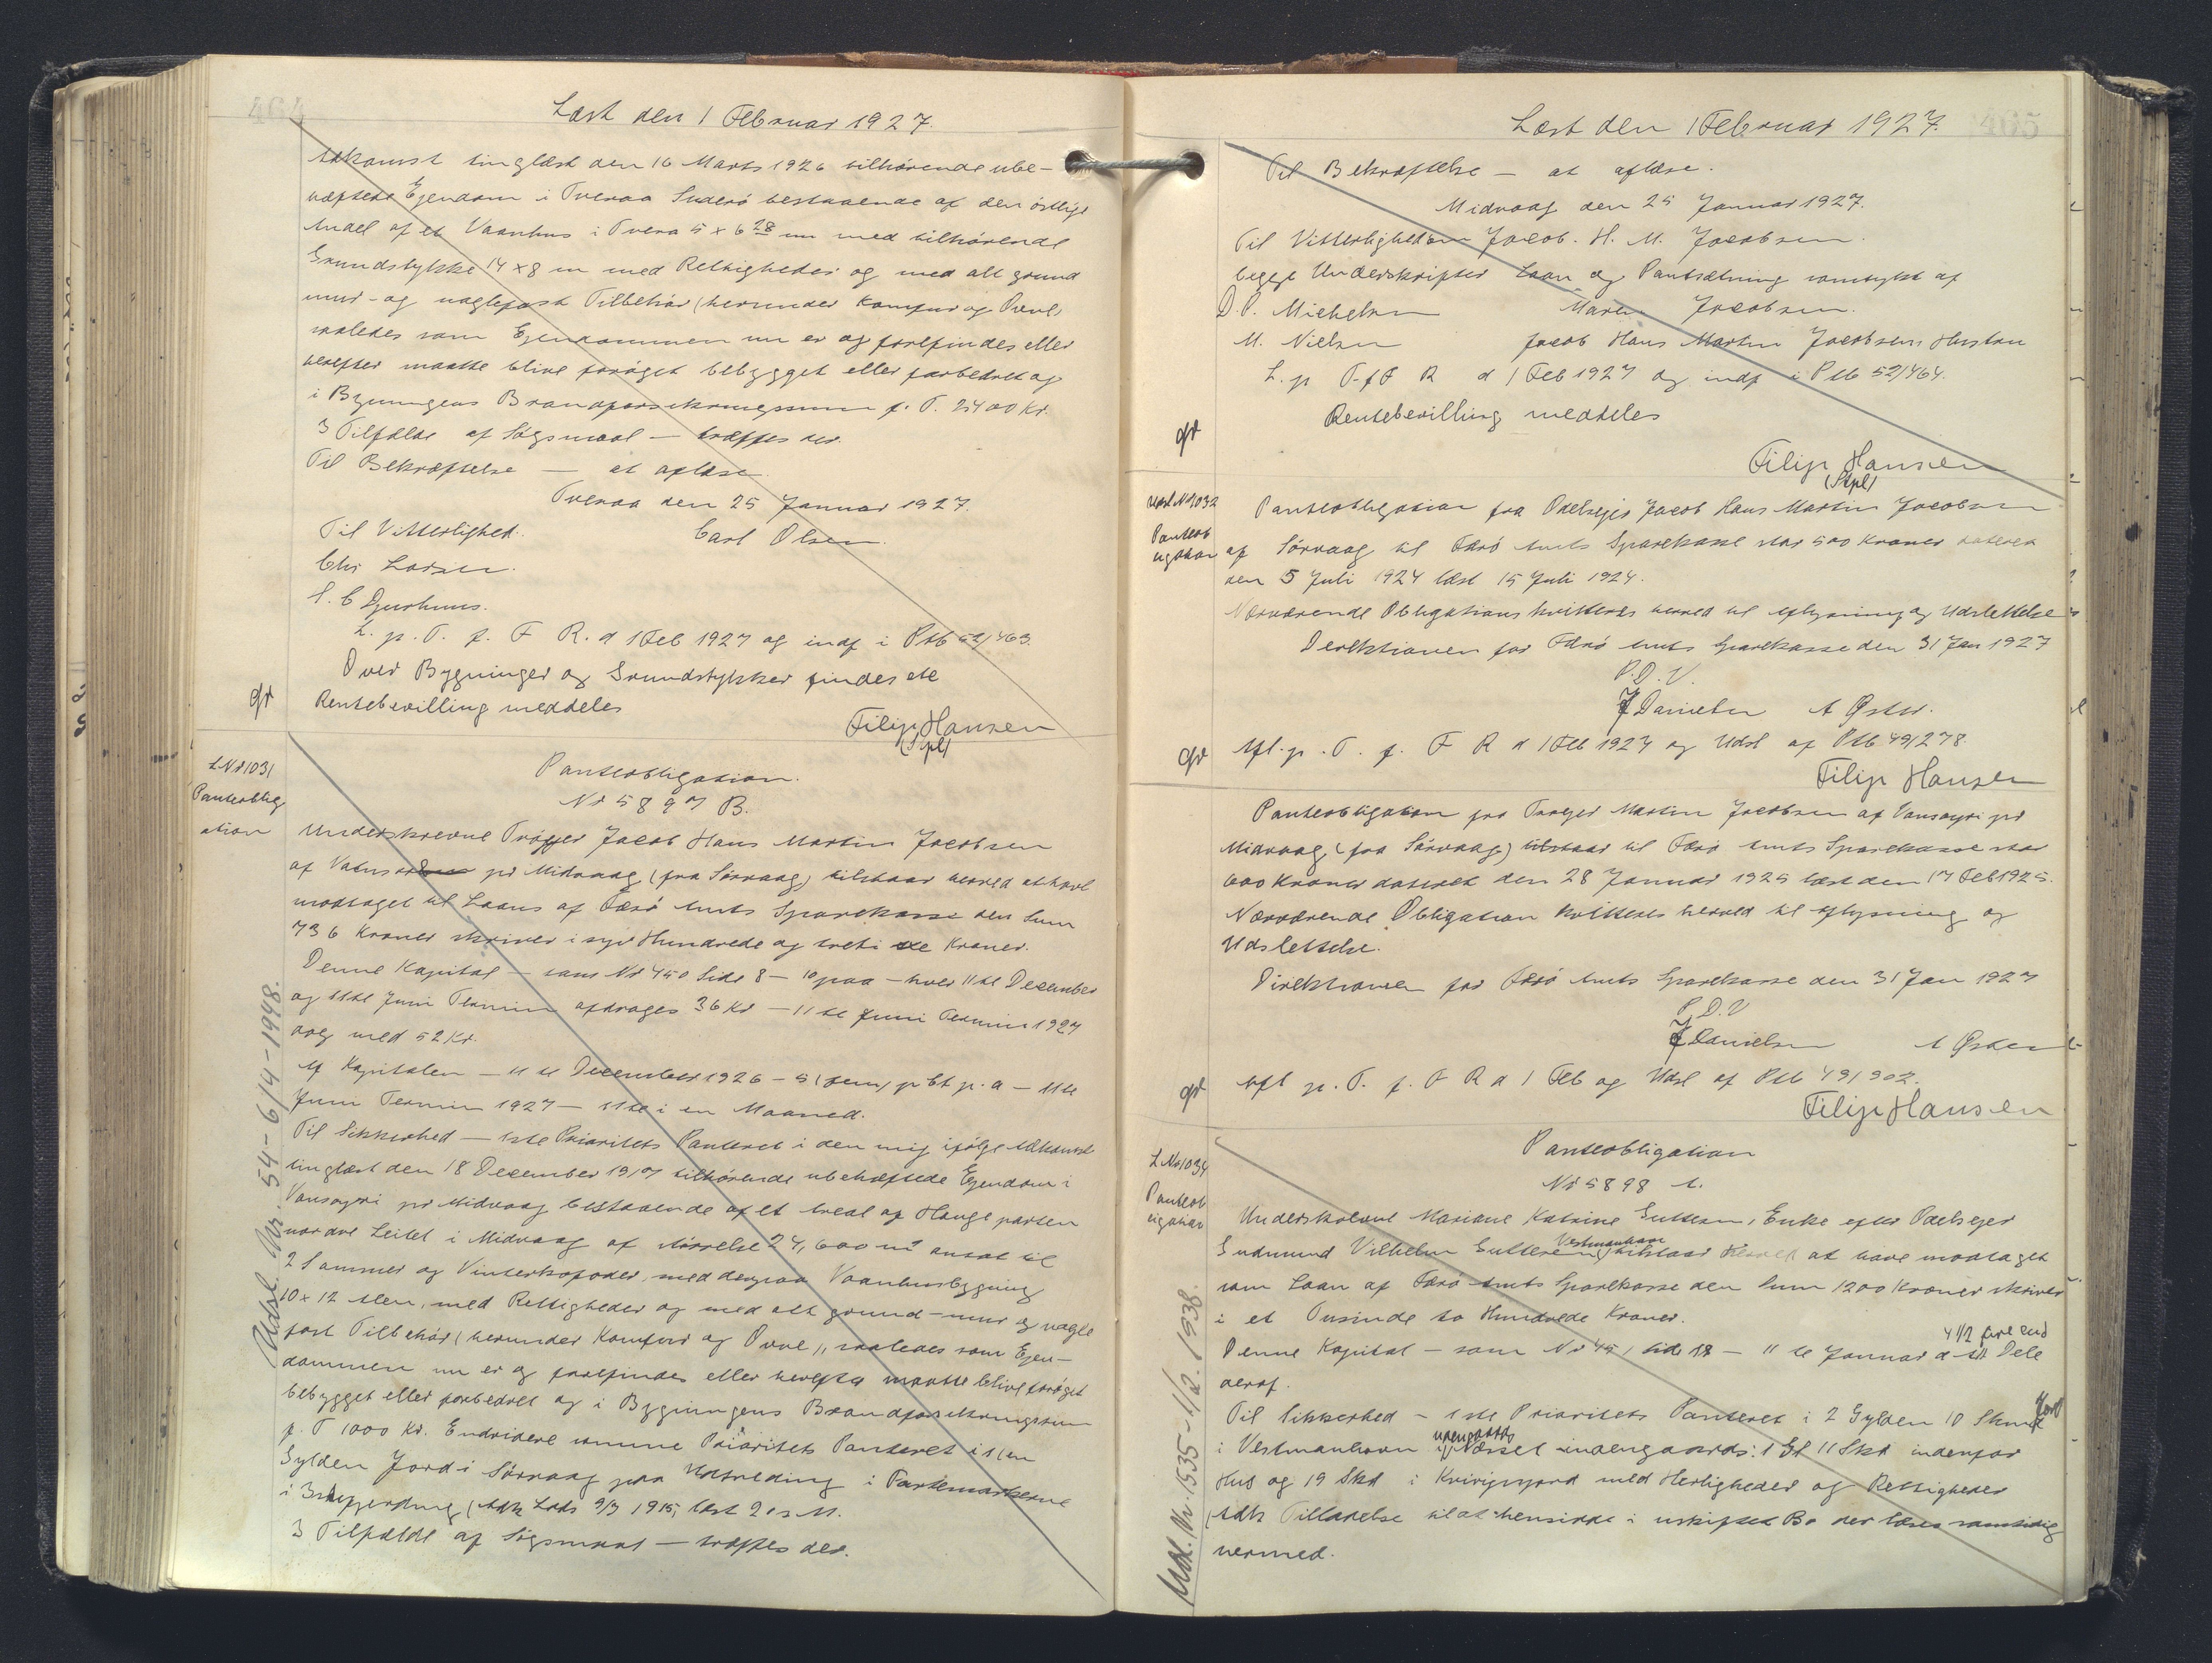 464
Læst den 1 Februar 1927.
Adkomst tinglæst den 16 Marts 1926 tilhørende ube-
hæftede Ejendom i Tveraa Suderø bestaaende af den østlige
Andel af et Vaanhus i Tvera 5 x 6 28 m med tilhørende
Grundstykke 14 x 8 m med Rettigheder og med alt grund
mur- og naglefast Tilbehør (herunder Komfur og Ovne)
saaledes som Ejendommen nu er og forefindes eller
herefter maatte blive forøget bebygget eller forbedret og
i Bygningens Brandforsikringssum p. T. 2400 Kr.
I Tilfælde af Søgsmaal — træffes der.
Til Bekræftelse — at aflæse
Tveraa den 25 Januar 1927.
Til Vitterlighed: Carl Olsen.
Chr Larsen.
H. C Djurhuus.
L. p. T. f. F R. d 1 Feb 1927 og indf i Ptb 52/463.
Over Bygninger og Grundstykker findes ete
gr Rentebevilling meddeles
Filip Hansen
(Stpl)
L Nr 1031
Panteoblig
ation
Panteobligation.
Nr 5897 B.
Underskrevne Trøjer Jacob Hans Martin Jacobsen
af Vatns pr Midvaag (fra Sørvaag) tilstaar herved at have
modtaget til Laans af Færø Amts Sparekasse den Sum
736 Kroner skriver i syv Hundrede og treti Kroner.
Denne Kapital — som Nr 450 Side 8 — 10 paa — hver 11te December
og 11te Juni Termin afdrages 36 Kr — 11te Juni Termin 1927
og med 52 Kr.
Af Kapitalen — 11te December 1926 – 5 (fem) p Ct p. a — 11te
Juni Termin 1927 — 11te i en Maaned.
Til Sikkerhed — 1ste Prioritets Panteret i den mig ifølge Adkomst
tinglæst den 18 December 1917 tilhørende ubehæftede Ejendom i
Vansoyri pr Midvaag bestaaende af et Areal af Hauge parten
nordre Leitet i Midvaag af størrelse 24,600 m² ansat til
2 Sommer og Vinterkofoder, med derpaa Vaanhusbygning
10 x 12 Alen, med Rettigheder og med alt grund-mur og nagle
fast Tilbehør (herunder Komfur og Ovne), saaledes som Ejen-
dommen nu er og forefindes eller herefter maatte blive forøget
bebygget eller forbedret og i Bygningens Brandforsikringssum
p. T 1000 Kr. Endvidere samme Prioritets Panteret i 1 (en
Gylden Jord i Sørvaag paa Udstrelding i Fartemarkerne
i (Adk Lods 9/3 1915, læst 20 s. M.
I Tilfælde af Søgsmaal — træffes der.
Udsl. Nr. 54 - 6/4 - 1948.
465
Læst den 1 Februar 1927.
Til Bekræftelse — at aflæse.
Midvaag den 25 Januar 1927.
Til Vitterligheden Jacob. H. M. Jacobsen.
begge Underskrifter Laan og Pantsætning samtykt af
D. P. Michelsen Maren Jacobsen.
M. Nielsen Jacob Hans Martin Jacobsens Hustru
L. p T. f F R d 1 Feb 1927 og indf i Ptb 52/464.
gr Rentebevilling meddeles
Filip Hansen
(Stpl)
Udsl Nr 1032
Panteob
ligation
Panteobligation fra Odelsejer Jacob Hans Martin Jacobsen
af Sørvaag til Færø Amts Sparekasse stor 500 Kroner dateret
den 5 Juli 1924 læst 15 Juli 1924.
Nærværende Obligations kvitteres herved til Aflysning og Udslettelse
Direktionen for Færø Amts Sparekasse den 31 Jan 1927
P. D. V.
J Danielsen A Øster.
gr Afl. p. T. f. F R d 1 Feb 1927 og Udsl af Ptb 49/278.
Filip Hansen
Panteobligation fra Trøjer Martin Jacobsen af Vansoyri pr
Midvaag, (fra Sørvaag) tilstaar til Færø Amts Sparekasse stor
600 Kroner dateret den 28 Januar 1925 læst den 17 Feb 1925.
Nærværende Obligation kvitteres herved til Aflysning og
Udslettelse.
Direktionen for Færø Amts Sparekasse den 31 Jan 1927
P. D. V
J Danielsen A Øster
gr Afl p. T. f. F R d 1 Feb og Udsl af Ptb 49/902.
Filip Hansen
L Nr 1034
Panteob
ligation
Panteobligation
Nr 5898 A.
Underskrevne Mariane Katrine Guttesen, Enke efter Odelsejer
Gudmund Vilhelm Guttesen, Vestmanhavn tilstaar herved at have modtaget
som Laan af Færø Amts Sparekasse den Sum 1200 Kroner skriver
i et Tusinde to Hundrede Kroner.
Denne Kapital — som Nr 451 Side 18 — 11te Januar d 4 1/2 fire end Dele
deraf.
Til Sikkerhed — 1ste Prioritets Panteret i 2 Gylden 10 Skind Jord
i Vestmanhavn udengaards i Næsset indengaards: 1 Gl 11 Skd indenfor
Hus og 19 Skd i Kvivigsgjord med Herligheder og Rettigheder
(Adk Tilladelse til at hensidde i uskiftet Bo der læses samtidig
hermed.
Udsl. Nr. 1535 - 1/2. 1938.